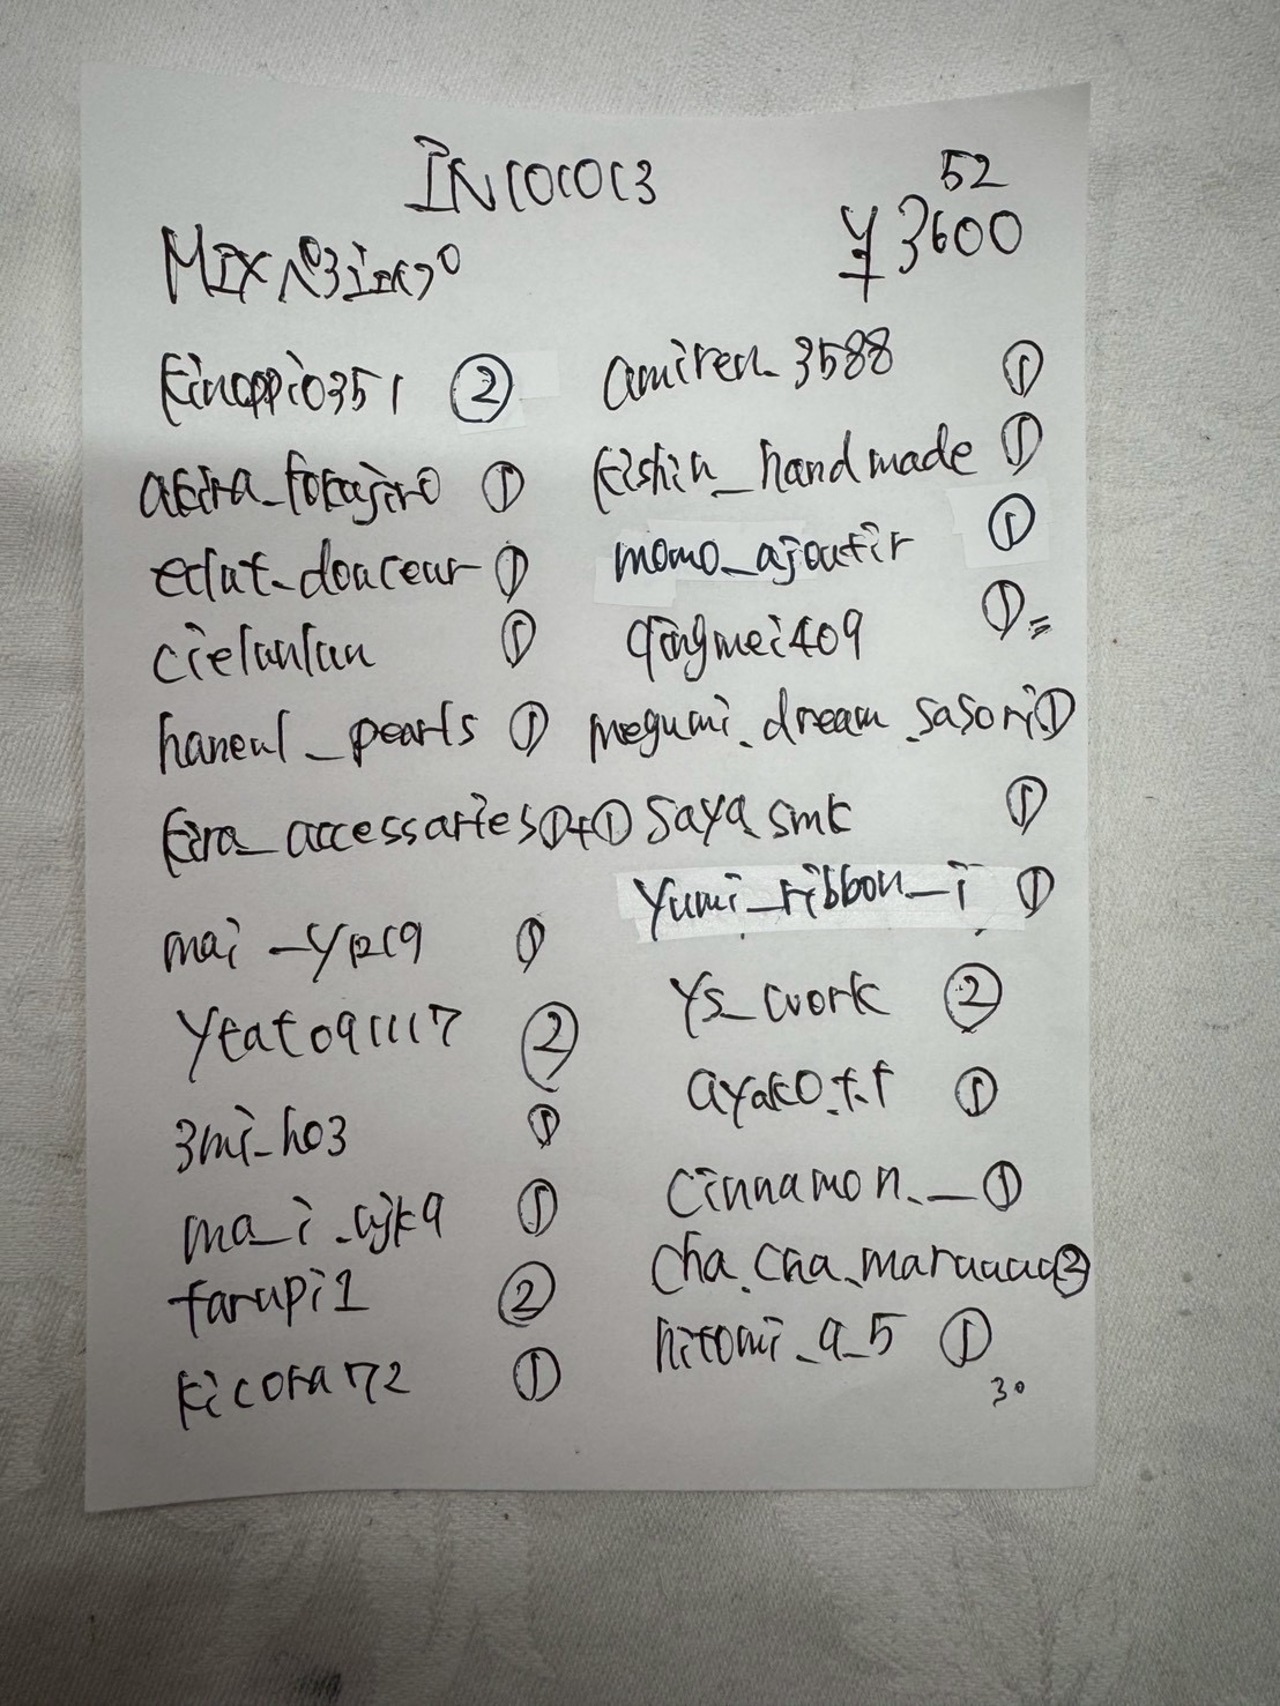 INCOCOC3
52
MIXパ3inップ
¥3600
kinoppio351 ②
akira_fokajiro ①
eclat_douceur ①
cielanlan ①
haneul_pearls ①
kira_accessaries①+①
mai_yρc9 ①
ykato091117 ②
3mi_ho3 ①
ma_i_ojk9 ①
farupi1 ②
kicora72 ①
amiren_3588 ①
kishin_handmade ①
momo_ajoutir ①
qingmei409 ①=
megumi.dream.sasori①
saya smk ①
yumi_ribbon_i ①
ys_work ②
ayako.t.f ①
cinnamon._ ①
cha.cha.maruuuu②
hitomi_a_5 ①
30